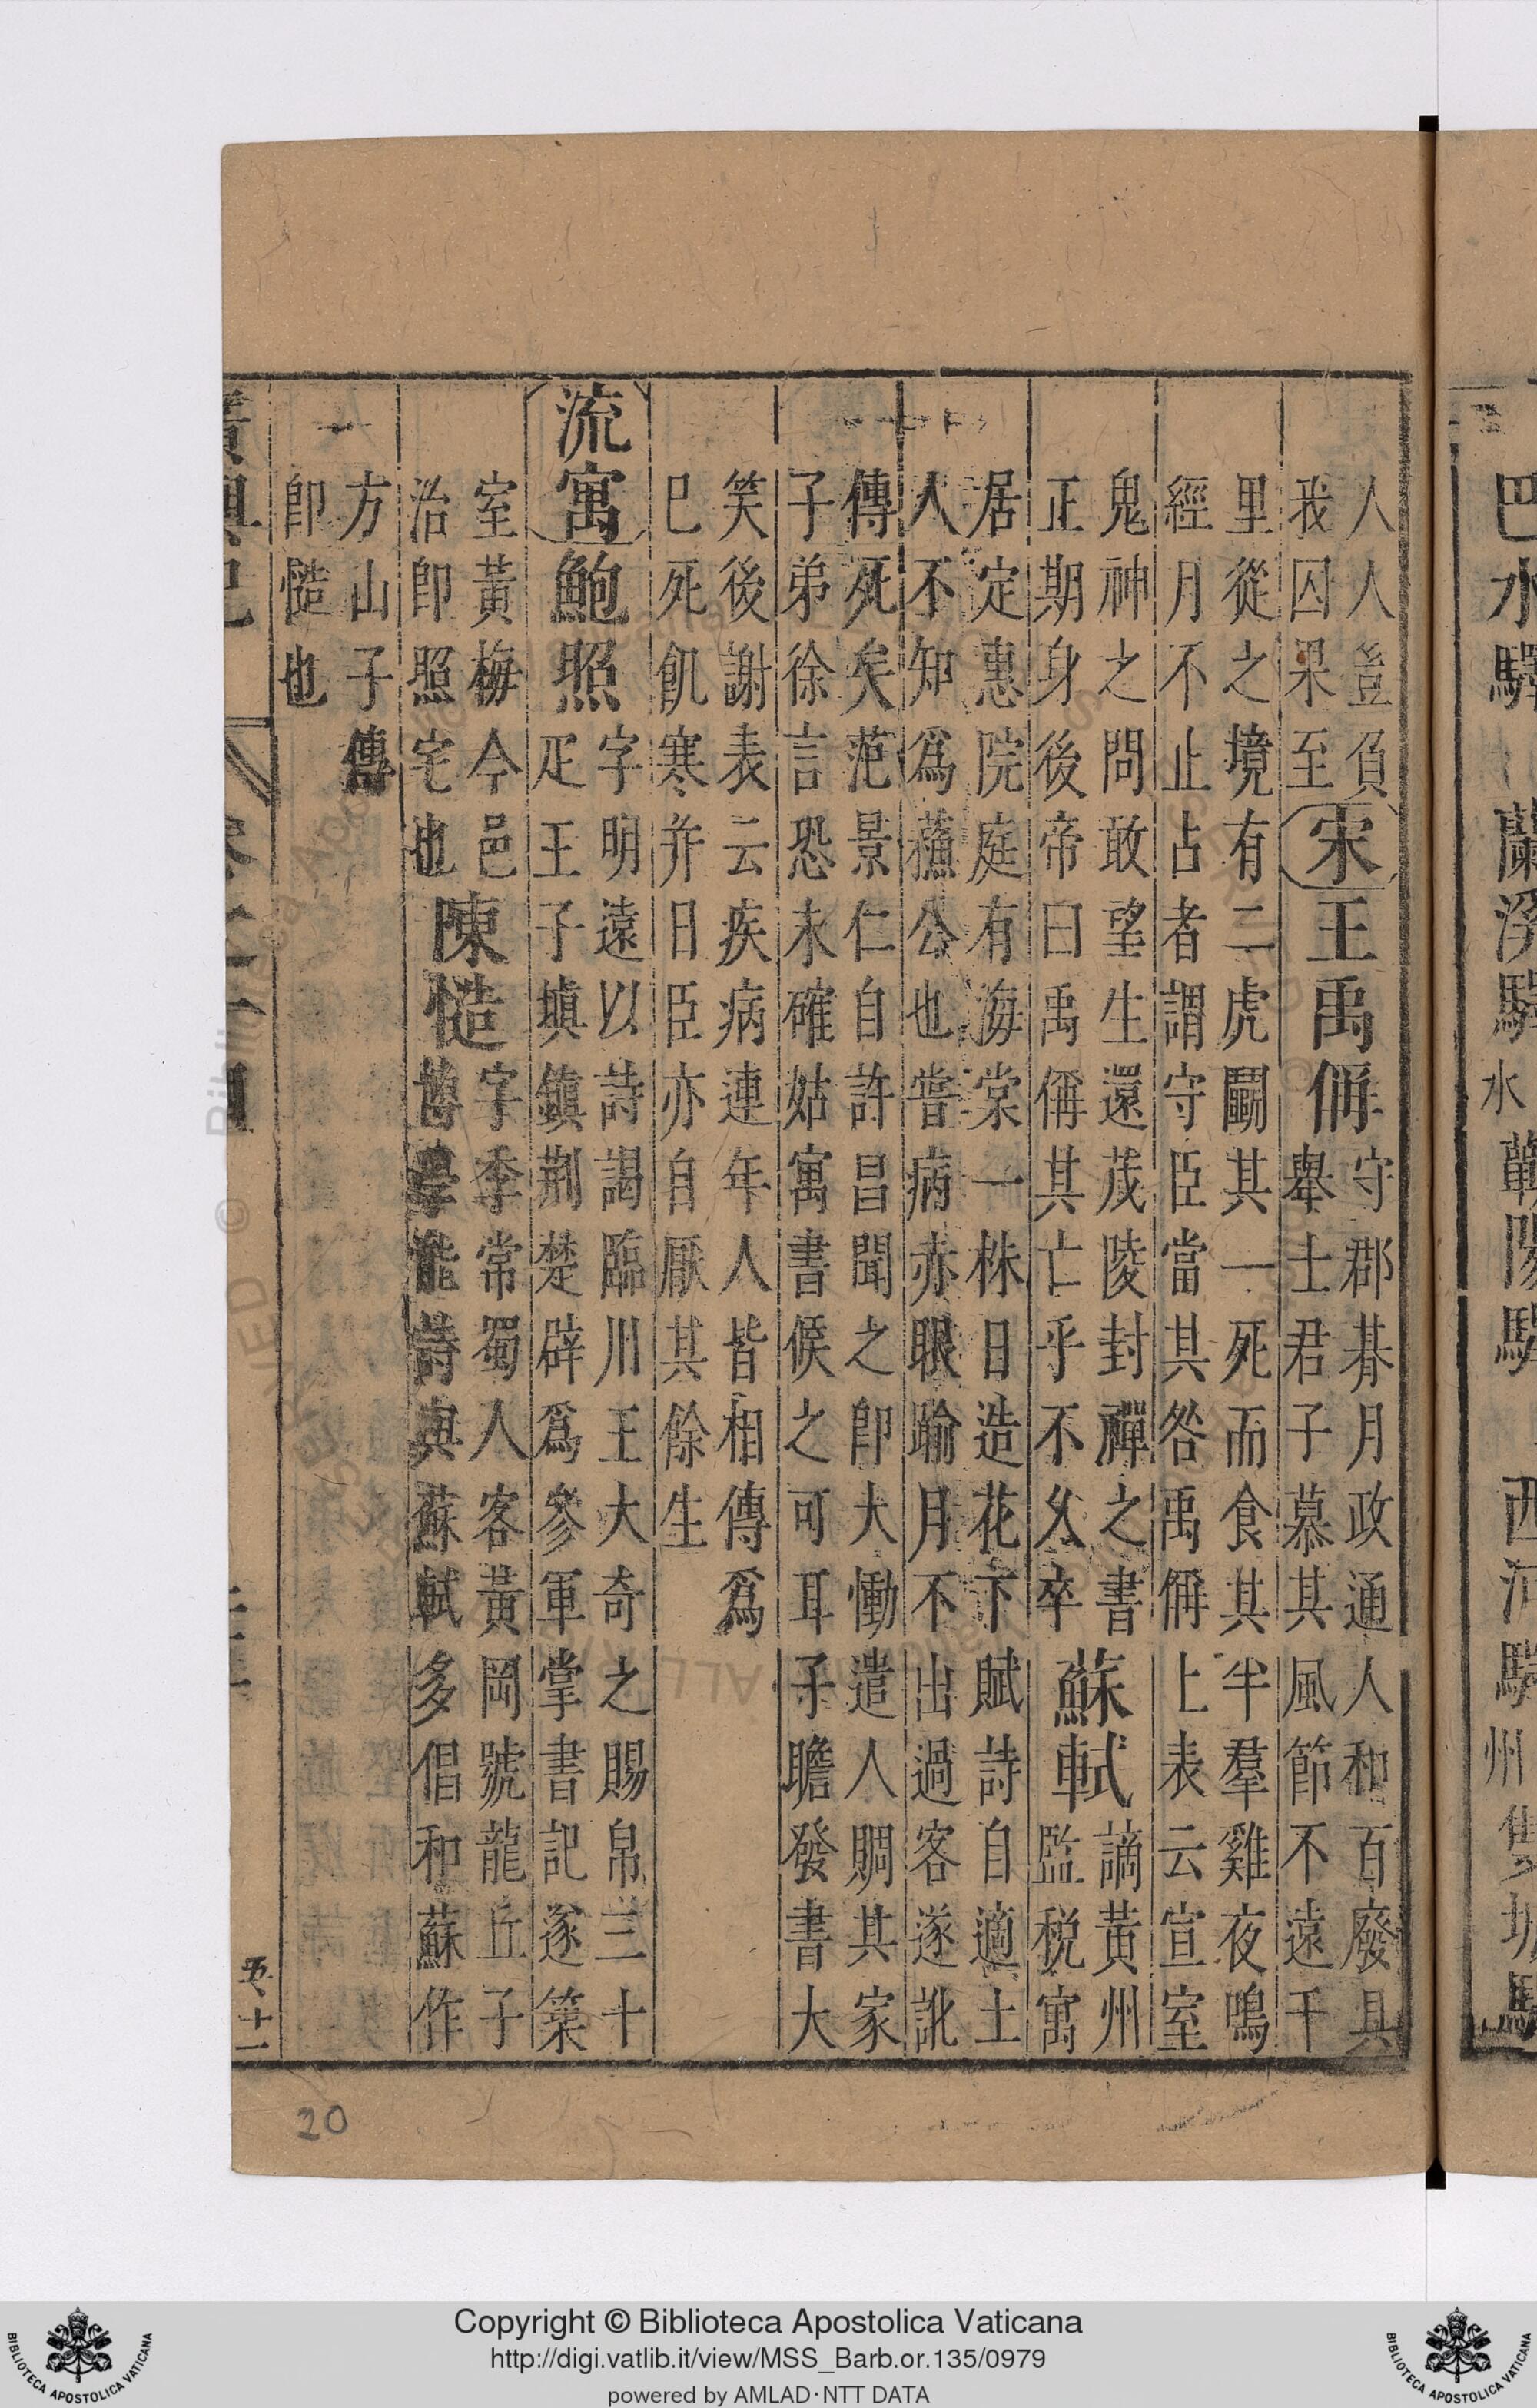 巴水驛 蘭溪驛 水
人人豈負
我囚果至
宋王禹偁
守郡朞月政通人和百廢具
舉士君子慕其風節不遠千
里從之境有二虎鬭其一死而食其半羣雞夜鳴
經月不止占者謂守臣當其咎禹偁上表云宣室
鬼神之問敢望生還茂陵封禪之書
正期身後帝曰禹偁其亡乎不久卒
蘇軾
謫黃州
監稅寓
居定惠院庭有海棠一株日造花下賦詩自適土
人不知爲蘓公也嘗病赤眼踰月不出過客遂訛
傳死矣范景仁自許昌聞之卽大慟遣人賙其家
子弟徐言恐未確姑寓書候之可耳子瞻發書大
笑後謝表云疾病連年人皆相傳爲
巳死飢寒并日臣亦自厭其餘生
流寓鮑照
字明遠以詩謁臨川王大奇之賜帛三十
疋王子塡鎮荆楚辟爲參軍掌書記遂築
室黃梅今邑
治卽照宅也
陳慥
字季常蜀人客黃岡號龍丘子
能詩與蘇軾多倡和蘇作
方山子傳
卽慥也
十一
20
Copyright © Biblioteca Apostolica Vaticana
http://digi.vatlib.it/view/MSS_Barb.or.135/0979
powered by AMLAD·NTT DATA